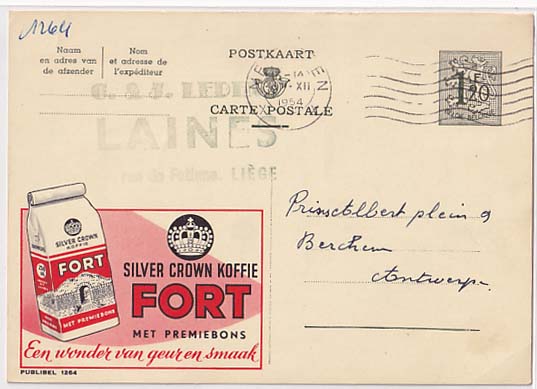 1264
Naam
en adres van
de afzender
Nom
et adresse de
l'expéditeur
POSTKAART
CARTE POSTALE
14
XII
1954
1F20
BELGIE-BELGIQUE
LAINES
LIÈGE
Prins Albert plein 9
Berchem
Antwerpen
SILVER CROWN
KOFFIE
FORT
MET PREMIEBONS
SILVER CROWN KOFFIE
FORT
MET PREMIEBONS
Een wonder van geur en smaak
PUBLIBEL 1264